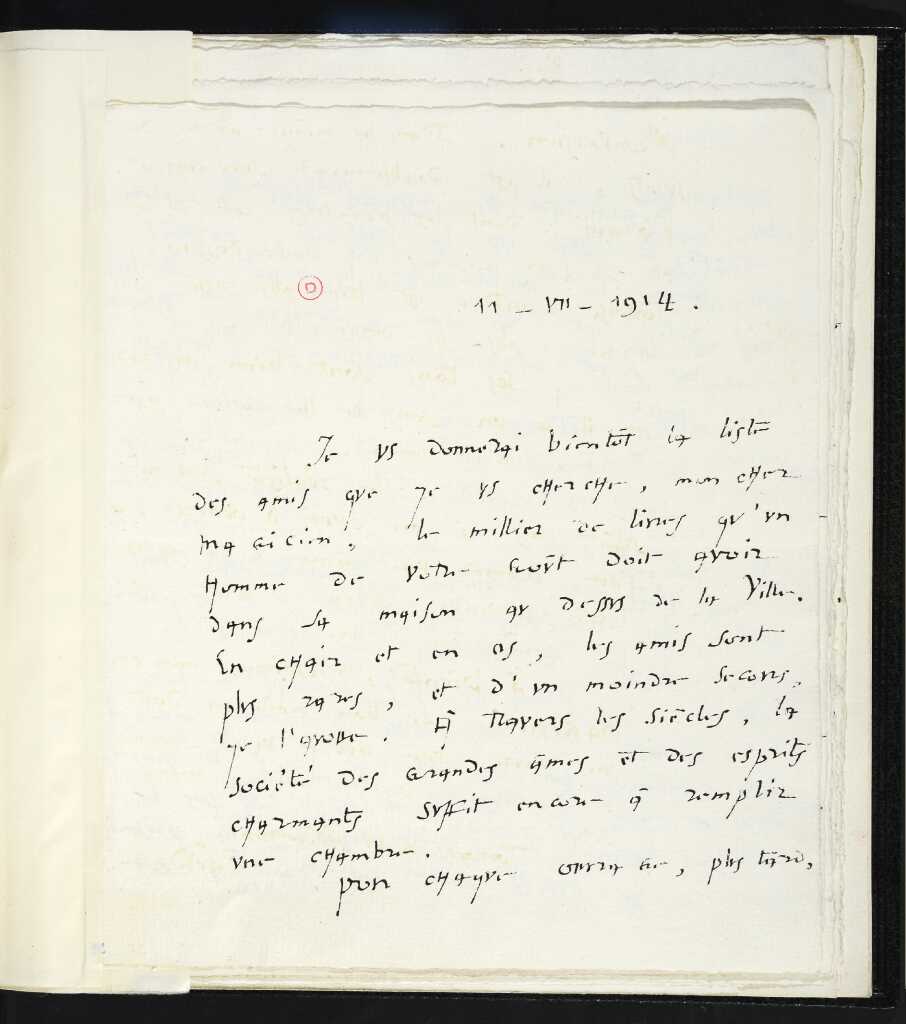 D
11 – VII – 1914.
Je vs donnerai bientôt la liste
des amis que je vs cherche, mon cher
magicien, le millier de livres qu'un
homme de votre goût doit avoir
dans sa maison au dessus de la Ville.
En chair et en os, les amis sont
plus rares, et d'un moindre secours,
je l'avoue. A travers les siècles, la
société des grandes âmes et des esprits
charmants suffit encore à remplir
une chambre.
Pour chaque ouvrage, plus tard,